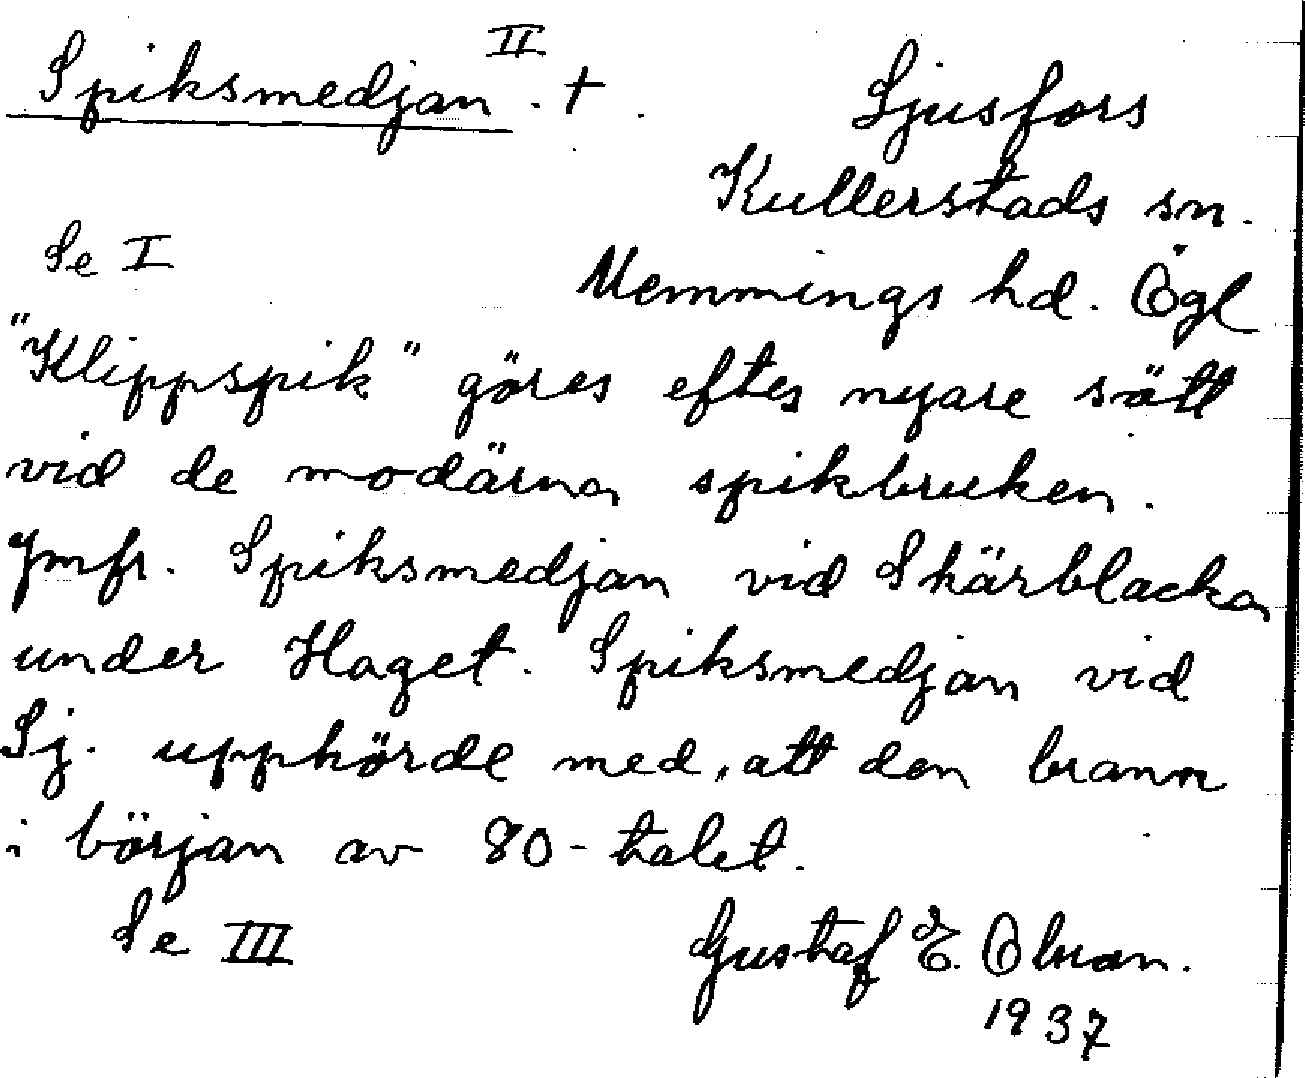 Spiksmedjan II. +
Ljusfors
Kullerstads sn.
Se I
Memmings hd. Ögl
"Klippspik" göres efter nyare sätt
vid de modärna spikbruken.
Jmfr. Spiksmedjan vid Skärblacka
under Haget. Spiksmedjan vid
Lj. upphörde med, att den brann
i början av 80-talet.
Se III
Gustaf E.
1937